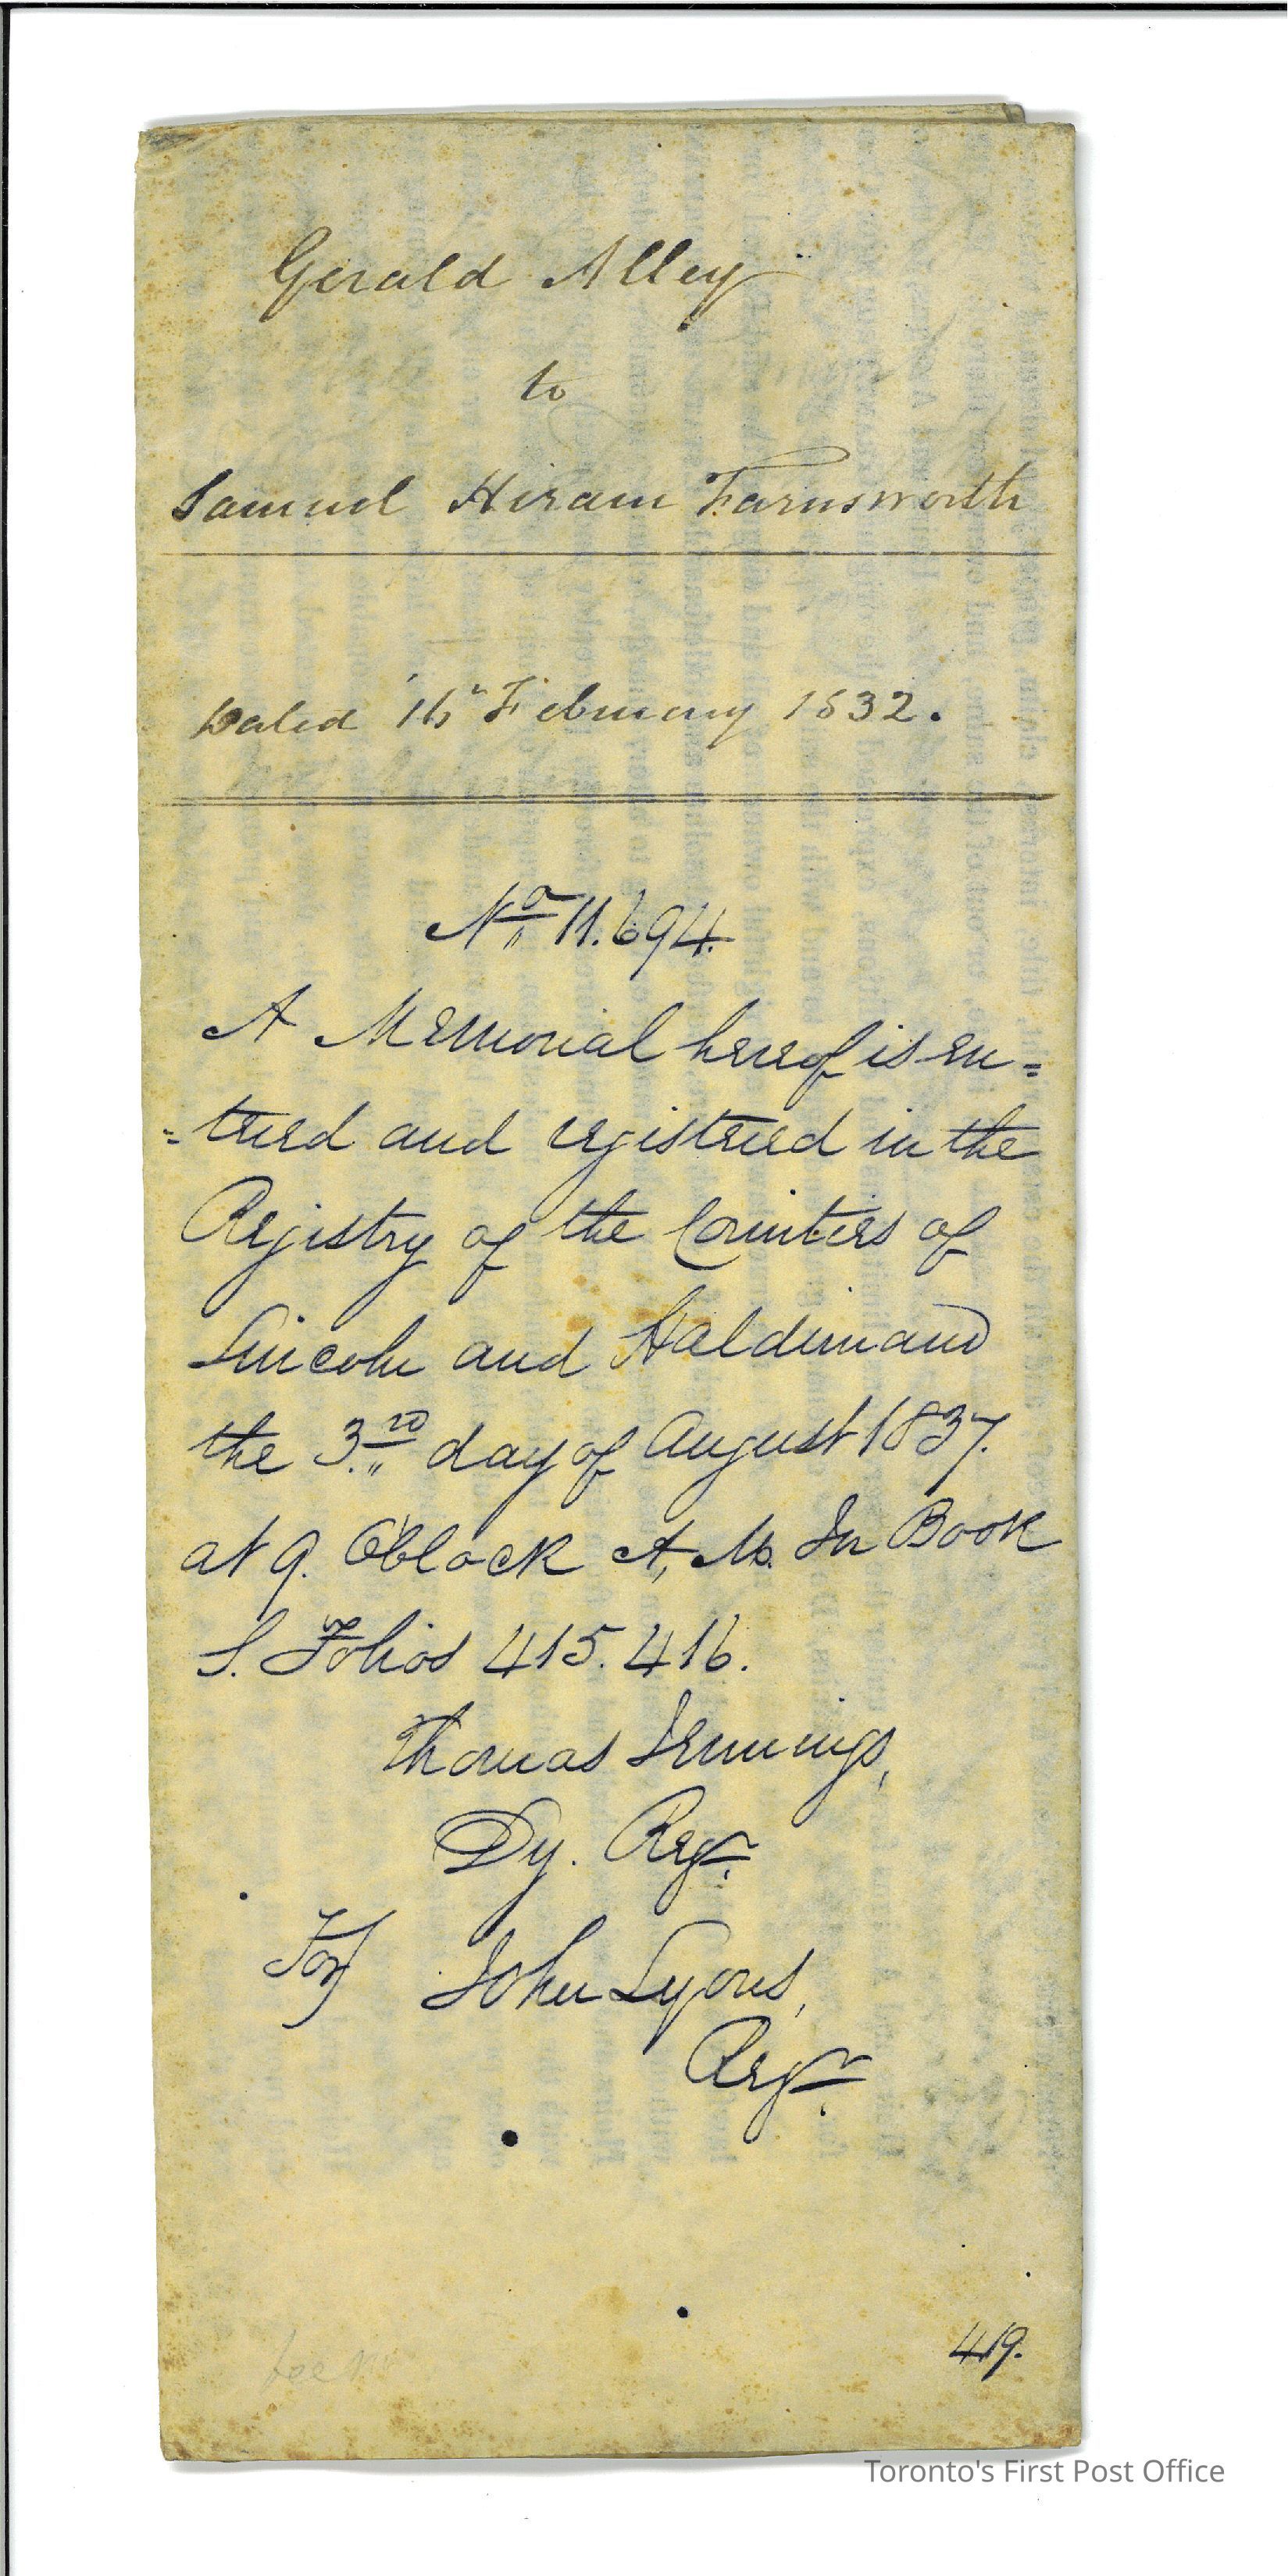 Gerald Alley
to
Samuel Hiram Farnsworth
Dated 16th February 1832.
No 11.694.
A Memorial hereof is en=
=tered and registered in the
Registry of the Counties of
Lincoln and Haldimand
the 3.rd day of August 1837.
at 9. O'Clock A, M. In Book
S. Folios 415. 416.
Thomas Jennings,
Dy. Regr.
For John Lyons,
Regr.
419.
Toronto's First Post Office